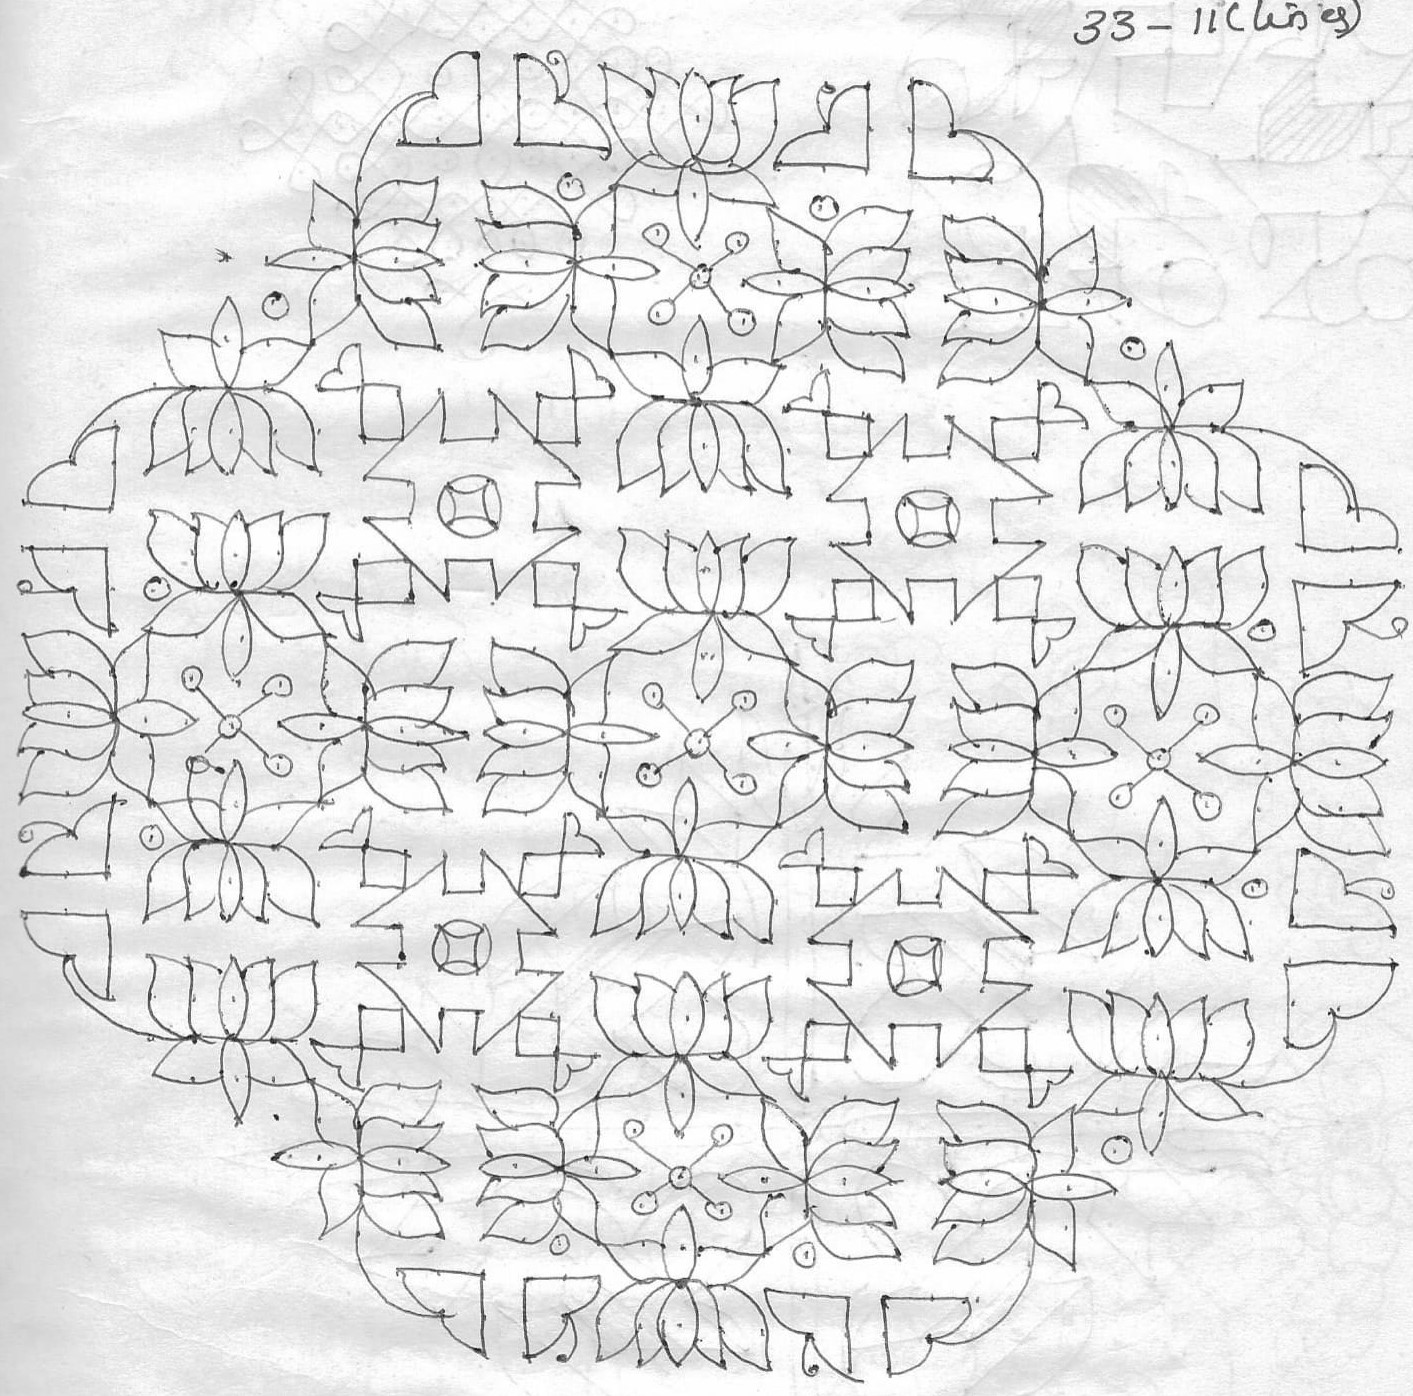 33 - 11 (Lines)